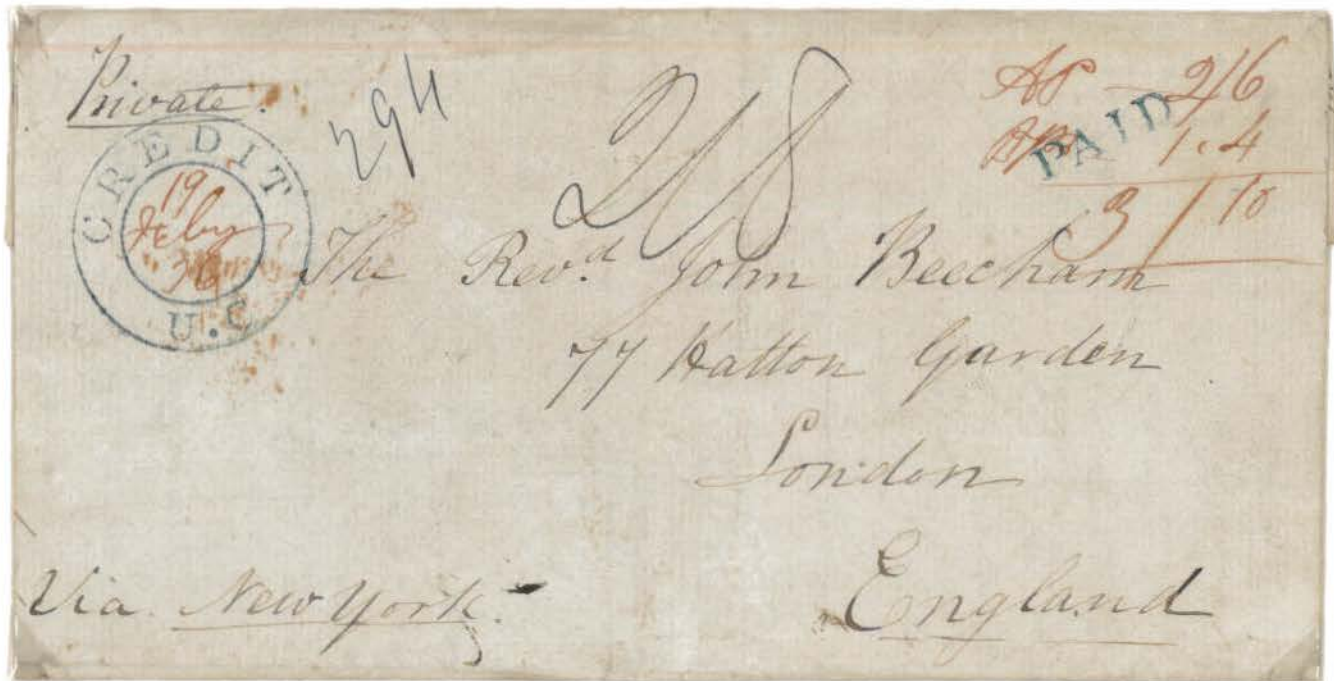 Private.
CREDIT
19
Feby
36
U.C
294
2/8
2/6
PAID
1.4
3/10
The Rev.d John Beecham
77 Hatton Garden
London
England
Via New York